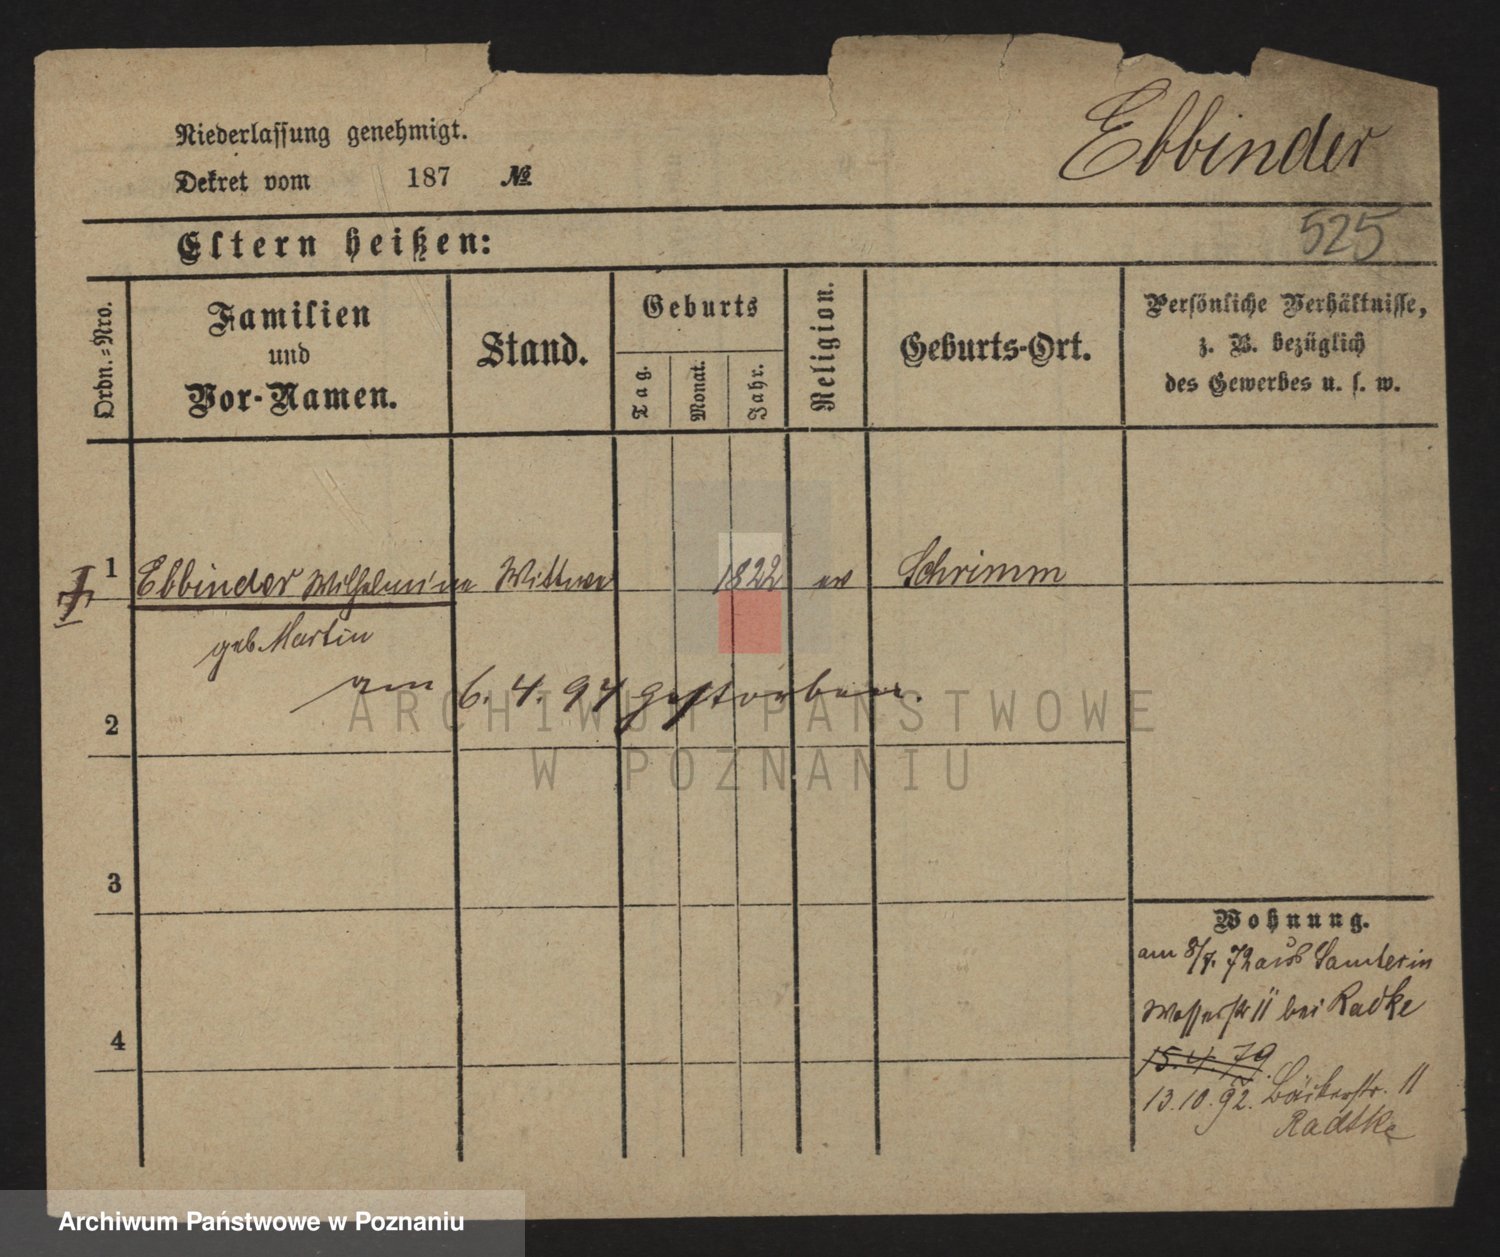 Niederlassung genehmigt.
Dekret vom 187 №
Ebbinder
525
Eltern heißen:
Ordn.-Nro.
Familien
und
Vor-Namen.
Stand.
Geburts
Tag.
Monat.
Jahr.
Religion.
Geburts-Ort.
Persönliche Verhältnisse,
z. B. bezüglich
des Gewerbes u. s. w.
1 Ebbinder Wilhelmine Wittwe 1822 ev Schrimm
geb. Martin
am 6. 4. 94 gestorben.
2
3
4
Wohnung.
am 8/7. 72 aus Samter in
Wasserstr 11 bei Radke
15. 4. 79.
13. 10. 92. Bäckerstr. 11
Radtke
ARCHIWUM PAŃSTWOWE
W POZNANIU
Archiwum Państwowe w Poznaniu